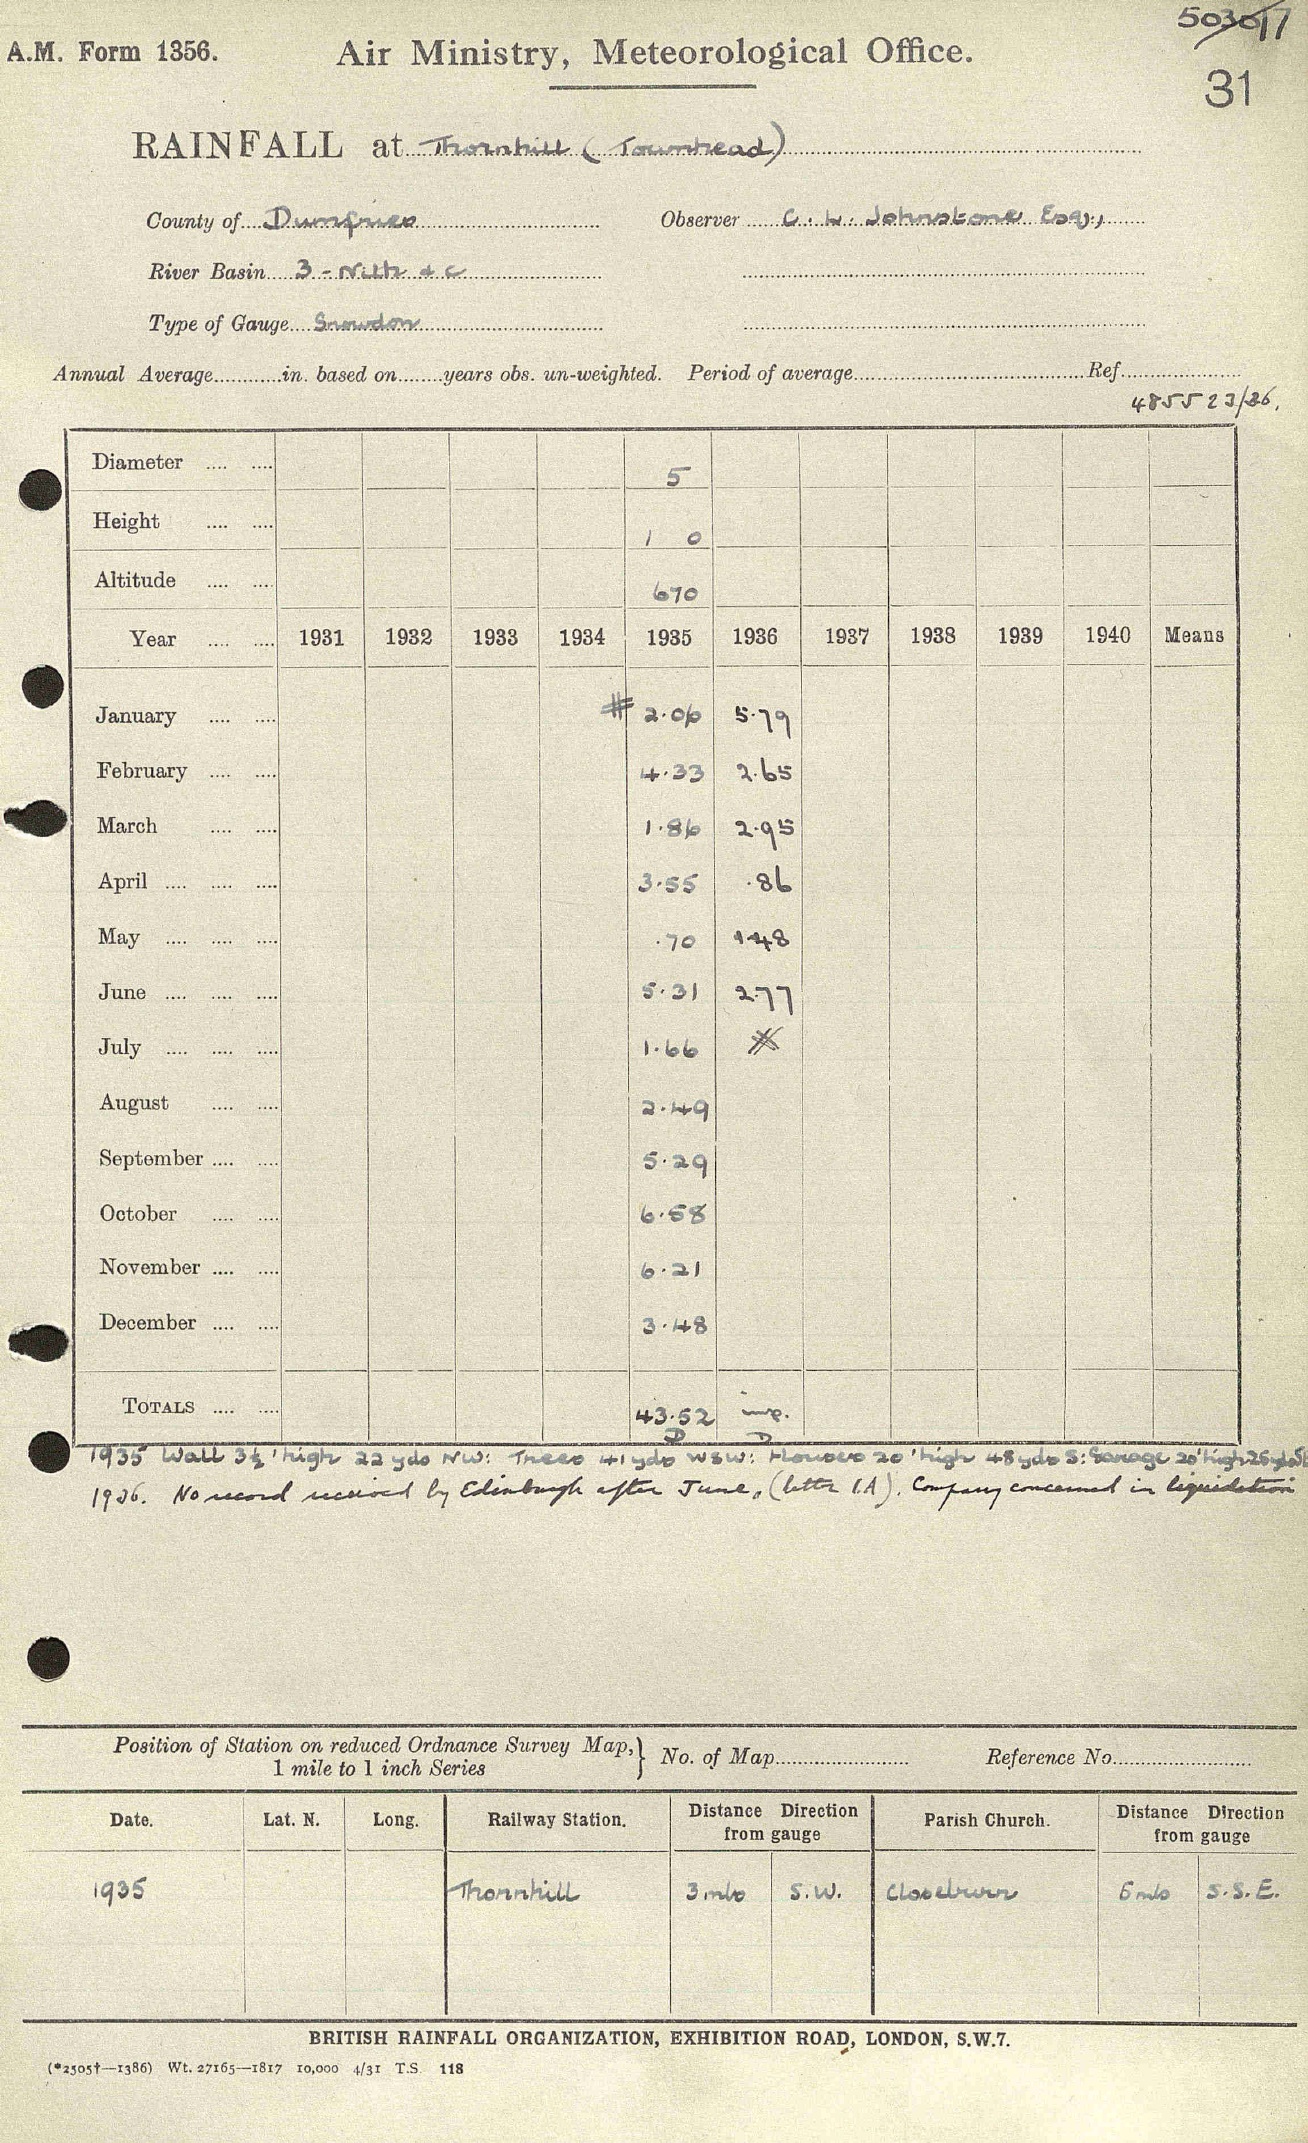 50301 7
31
A.M. Form 1356.
Air Ministry, Meteorological Office.
RAINFALL at Thornhill (Townhead)
County of Dumfries Observer C. L. Johnstone Esq.,
River Basin 3 - Nith & c
Type of Gauge Snowdon
Annual Average in. based on years obs. un-weighted. Period of average Ref.
485523/36.
Diameter .... .... 5
Height .... .... 1 0
Altitude .... .... 670
Year .... .... 1931 1932 1933 1934 1935 1936 1937 1938 1939 1940 Means
January .... .... # 2.06 5.79
February .... .... 4.33 2.65
March .... .... 1.86 2.95
April .... .... .... 3.55 .86
May .... .... .... .70 1.48
June .... .... .... 5.31 2.77
July .... .... .... 1.66
August .... .... 2.49
September .... .... 5.29
October .... .... 6.58
November .... .... 6.21
December .... .... 3.48
TOTALS .... .... 43.52 inc.
D D
1935 Wall 3½' high 22 yds NW: Trees 41 yds WSW: Houses 20' high 48 yds S: Garage 20' high 26 yds
1936. No record received by Edinburgh after June, (letter 1A). Company concerned in liquidation
Position of Station on reduced Ordnance Survey Map, } No. of Map Reference No.
1 mile to 1 inch Series
Date. Lat. N. Long. Railway Station. Distance Direction from gauge Parish Church. Distance Direction from gauge
1935 Thornhill 3 mls S.W. Closeburn 5 mls S.S.E.
BRITISH RAINFALL ORGANIZATION, EXHIBITION ROAD, LONDON, S.W.7.
(*2505†—1386) Wt. 27165—1817 10,000 4/31 T.S. 118